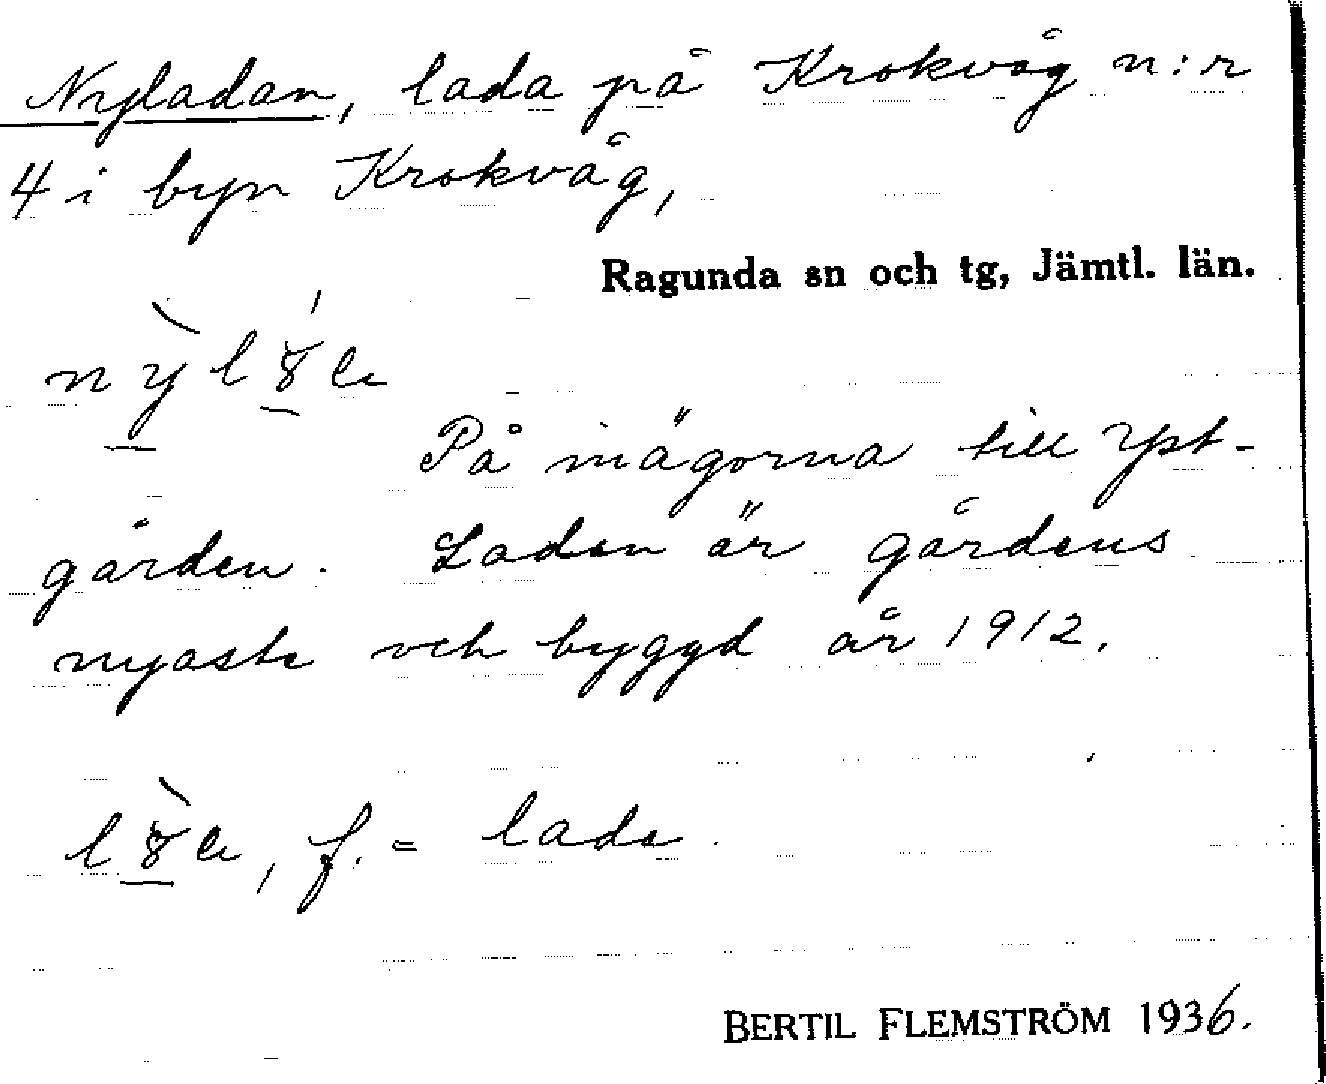 Nyladan, lada på Krokvåg n:r
4 i byn Krokvåg,
Ragunda sn och tg, Jämtl. län.
På inägorna till Yst-
gården. Ladan är gårdens
nyaste och byggd år 1912.
f. = lada
BERTIL FLEMSTRÖM 1936.